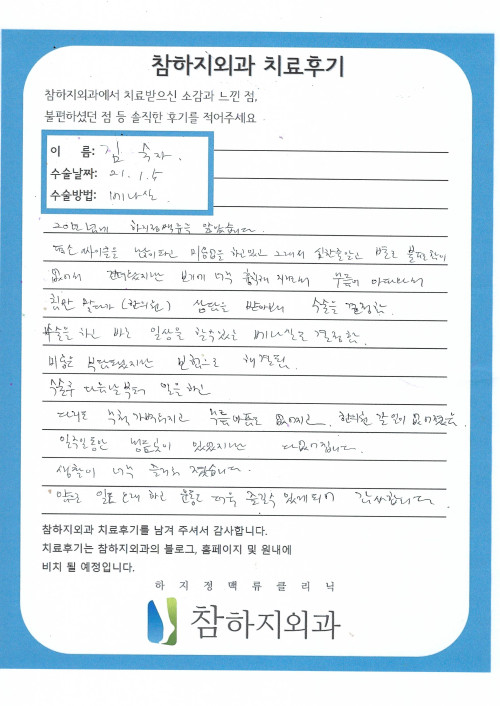 참하지외과 치료후기
참하지외과에서 치료받으신 소감과 느낀 점,
불편하셨던 점 등 솔직한 후기를 적어주세요
이 름: 김
수술날짜: 21. 1. 5
수술방법: 베나실
하지정맥류를 알았습니다.
평소 싸이클을 많이타고 하고있고 그래서 별로 불편함이
없어서 견뎌왔지만 보기에 너무 무릎이 아파와서
침만 맞다가 (한의원) 상담을 받아보니 수술을 결정함.
수술을 하고 바로 일상을 할수있는 베나실로 결정함.
비용은 부담됐지만 보험으로 해결됨.
수술후 다음날부터 일을하고
다리도 가벼워지고 무릎아픔도 없어지고 한의원 갈 일이 없어졌음.
일주일동안 있었지만 다 없어집니다.
생활이 너무 즐거워 졌습니다.
앞으로 일도 오래 하고 운동도 더욱 즐길수 있게되어 감사합니다.
참하지외과 치료후기를 남겨 주셔서 감사합니다.
치료후기는 참하지외과의 블로그, 홈페이지 및 원내에
비치 될 예정입니다.
하지정맥류클리닉
참하지외과